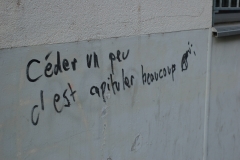 Céder un peu
d'est apituler beaucoup